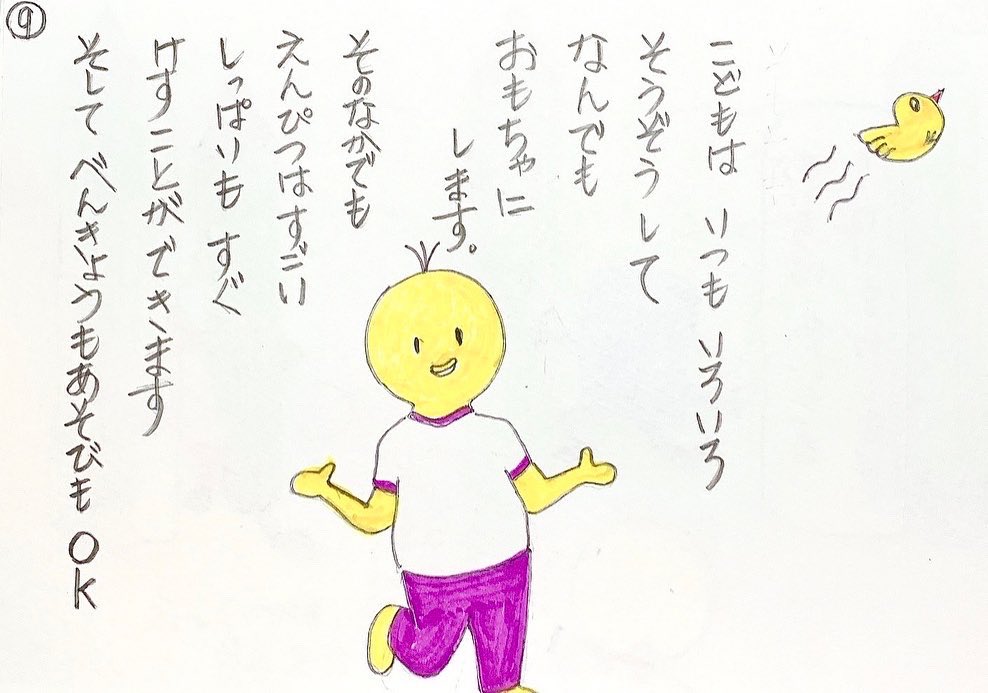 ⑨
こどもは いつも いろいろ
そうぞうして
なんでも
おもちゃに
します。
そのなかでも
えんぴつはすごい
しっぱいも すぐ
けすことができます
そして べんきようもあそびも OK